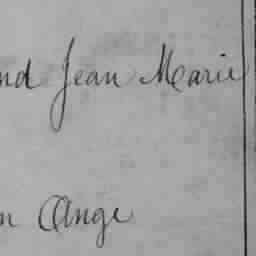 nd Jean Marie
n Ange